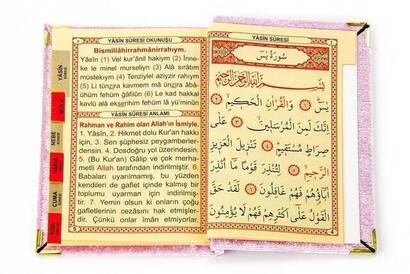 YÂSÎN SÛRESİ OKUNUŞU
Bismillâhirrahmânirrahıym.
Yâsîn (1) Vel kur'ânil hakiym (2) İnne-
ke le minel murseliyn (3) Alâ sırâtım
müstekıym (4) Tenziylel aziyzir rahıym
(5) Li tünzira kavmem mâ ünzira âbâ-
ühüm fehüm ğâfilûn (6) Le kad hakkal
kavlü alâ ekserihim fehüm lâ yü'minûn
YÂSÎN SÛRESİ ANLAMI
Rahman ve Rahim olan Allah'ın İsmiyle.
1. Yâsîn, 2. Hikmet dolu Kur'an hakkı
için, 3. Sen şüphesiz peygamberler-
densin. 4. Dosdoğru yol üzerindesin.
5. (Bu Kur'an) Gâlip ve çok merha-
metli Allah tarafından indirilmiştir. 6.
Babaları uyarılmamış, bu yüzden
kendileri de gaflet içinde kalmış bir
toplumu uyarman için indirilmiş-
tir. 7. Yemin olsun ki onların çoğu
gafletlerinin cezasını hak etmişler-
dir. Çünkü onlar îman etmiyorlar.
YÂSÎN
NEBE
CUMA
YÂSÎN SÛRESİ
سُورَةُ يٰسٓ
بِسْمِ اللّٰهِ الرَّحْمٰنِ الرَّحِيمِ
يٰسٓ ﴿١﴾ وَالْقُرْاٰنِ الْحَكِيمِ ﴿٢﴾
اِنَّكَ لَمِنَ الْمُرْسَلِينَ ﴿٣﴾ عَلٰى
صِرَاطٍ مُسْتَقِيمٍ ﴿٤﴾ تَنْزِيلَ الْعَزِيزِ
الرَّحِيمِ ﴿٥﴾ لِتُنْذِرَ قَوْمًا مَٓا اُنْذِرَ
اٰبَٓاؤُ۬هُمْ فَهُمْ غَافِلُونَ ﴿٦﴾ لَقَدْ حَقَّ
الْقَوْلُ عَلٰٓى اَكْثَرِهِمْ فَهُمْ لَا يُؤْمِنُونَ